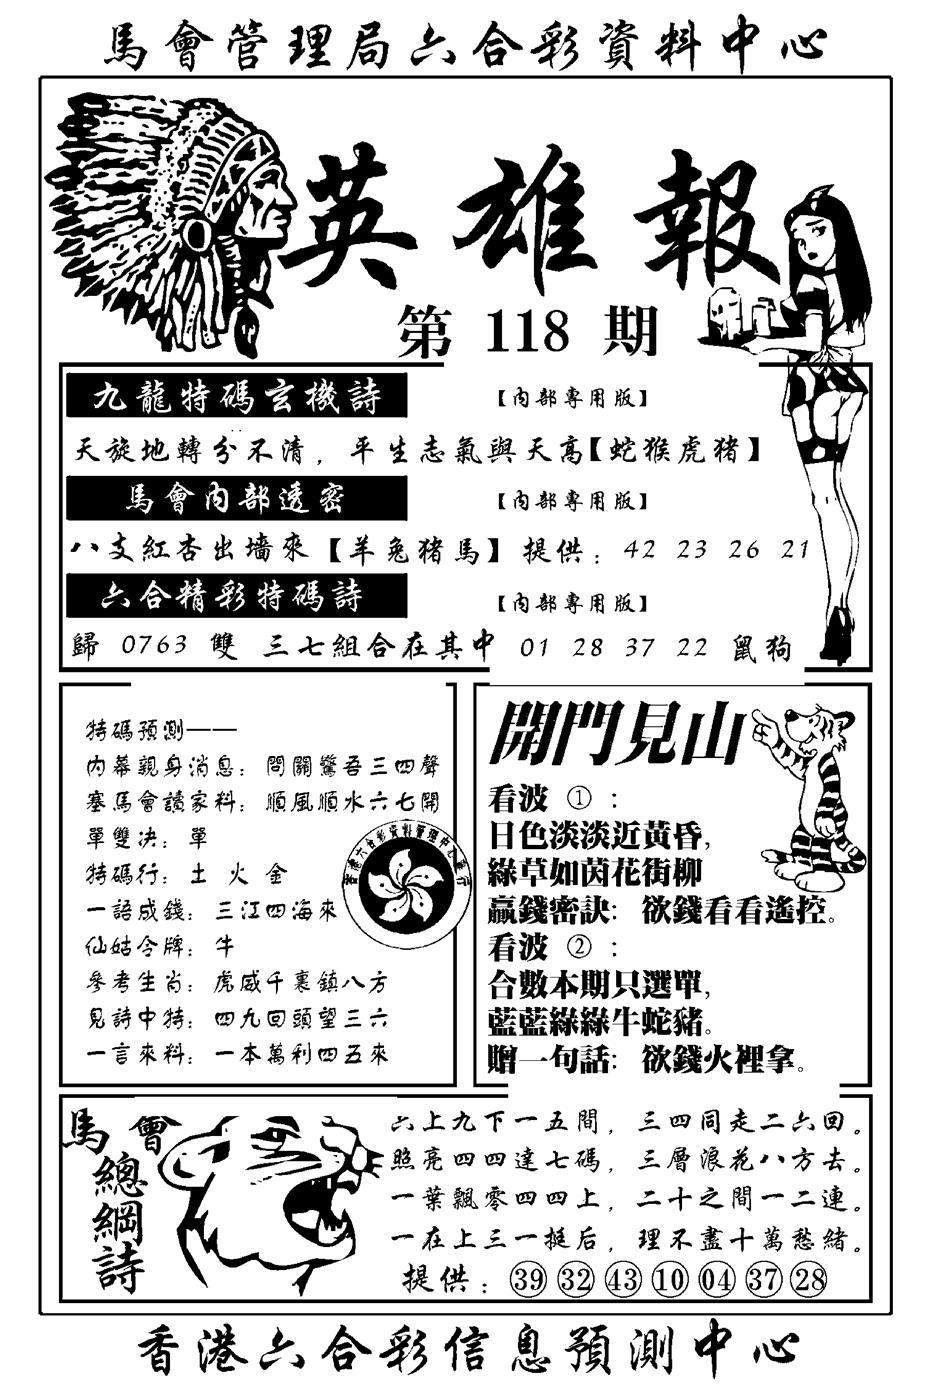 馬會管理局六合彩資料中心
英雄報
第 118 期
九龍特碼玄機詩 【內部專用版】
天旋地轉分不清，平生志氣與天高【蛇猴虎豬】
馬會內部透密 【內部專用版】
八支紅杏出墻來【羊兔豬馬】 提供：42 23 26 21
六合精彩特碼詩 【內部專用版】
歸 0763 雙 三七組合在其中 01 28 37 22 鼠狗
特碼預測——
內幕親身消息：問關驚吾三四聲
塞馬會讀家料：順風順水六七開
單雙决：單
特碼行：土 火 金
一語成錢：三江四海來
仙姑令牌：牛
參考生肖：虎威千裏鎮八方
見詩中特：四九回頭望三六
一言來料：一本萬利四五來
香港六合彩資料管理中心發行
開門見山
看波 ①：
日色淡淡近黃昏，
綠草如茵花街柳
贏錢密訣：欲錢看看遙控。
看波 ②：
合數本期只選單，
藍藍綠綠牛蛇豬。
贈一句話：欲錢火裡拿。
馬會
總綱詩
六上九下一五間，三四同走二六回。
照亮四四達七碼，三層浪花八方去。
一葉飄零四四上，二十之間一二連。
一在上三一挺后，理不盡十萬愁緒。
提供：㊴㉜㊸⑩04㊲㉘
香港六合彩信息預測中心